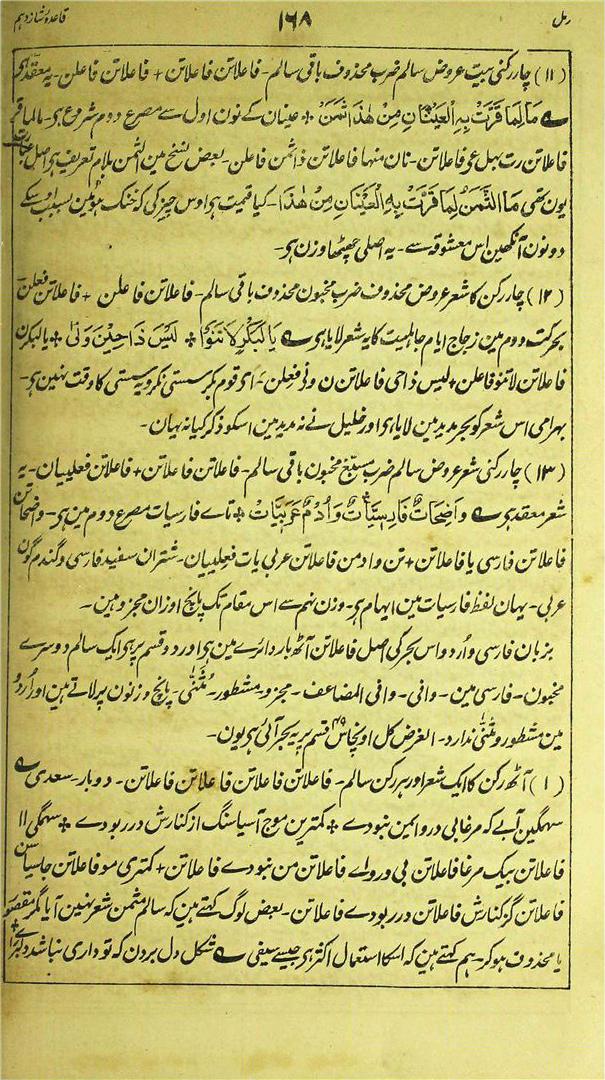 رمل ۱۶۸ قاعدہ شانزدہم
(۱۱) چار رکنی بیت عروض سالم ضرب محذوف باقی سالم۔ فاعلاتن فاعلاتن + فاعلاتن فاعلن۔ یہ معقد ہی
مَا لِمَا قَرَّتْ بِهِ الْعَيْنَانِ مِنْ هٰذَا ثَمَنٌ + عینان کے نون اول سے مصرع دوم شروع ہی۔ مالما قر
فاعلاتن رت بہل عی فاعلاتن۔ نان منہا فاعلاتن ذاثمن فاعلن۔ بعض نسخ مین الثمن بلام تعریف ہی اصل عبارت
یون تھی مَا الثَّمَنُ لِمَا قَرَّتْ بِهِ الْعَيْنَانِ مِنْ هٰذَا۔ کیا قیمت ہی اوس چیز کی کہ خنک ہوئین بسبب اسکے
دونون آنکھین اس معشوقہ سے۔ یہ اصلی چھٹھا وزن ہی۔
(۱۲) چار رکن کا شعر عروض محذوف ضرب مخبون محذوف باقی سالم۔ فاعلاتن فاعلن + فاعلاتن فعلن
بحرکت دوم مین زجاج ایام جاہلیت کا یہ شعر لایا ہی يَا لَبَكْرٍ لَا تَنُوْا + لَيْسَ ذَا حِيْنَ وَنٰى + یا لبکرن
فاعلاتن لاتنو فاعلن + لیس ذاحی فاعلاتن ن ونی فعلن۔ ای قوم بکر سستی نکرو یہ سستی کا وقت نہین ہی۔
بہرامی اس شعر کو بحر مدید مین لایا ہی اور خلیل نے نہ مدید مین اسکو ذکر کیا نہ یہان۔
(۱۳) چار رکنی شعر عروض سالم ضرب مسبغ مخبون باقی سالم۔ فاعلاتن فاعلاتن + فاعلاتن فعلییان۔ یہ
شعر معقد ہی وَاضِحَاتٌ فَارِسِيَّاتٌ وَاُدْمٌ عَرَبِيَّات + تاے فارسیات مصرع دوم مین ہی۔ واضحاتن
فاعلاتن فارسی یا فاعلاتن + تن وادمن فاعلاتن عربی یات فعلییان۔ شتران سفید فارسی و گندم گون
عربی۔ یہان لفظ فارسیات مین ایہام ہی۔ وزن نہم سے اس مقام تک پانچ اوزان مجزو ہین۔
بزبان فارسی و اُردو اس بحر کی اصل فاعلاتن آٹھ بار دائرے مین ہی اور دو قسم پر ہی ایک سالم دوسرے
مخبون۔ فارسی مین۔ وافی۔ وافی المضاعف۔ مجزو۔ مشطور۔ مُثَنّٰی۔ پانچ وزنون پر لاتے ہین اور اُردو
مین مشطور و مثنّٰی ندارد۔ الغرض کل اونچاس ۴۹ قسم پر یہ بحر آئی ہی یون۔
(۱) آٹھ رکن کا ایک شعر اور ہر رکن سالم۔ فاعلاتن فاعلاتن فاعلاتن فاعلاتن۔ دو بار۔ سعدی
سہمگین آبے کہ مرغابی درو ایمن نبودے + کمترین موج آسیا سنگ از کنارش در ربودے + سہمگی اا
فاعلاتن بیک مرغا فاعلاتن بی درو اے فاعلاتن من نبودے فاعلاتن + کمتری مو فاعلاتن جاسیاسن
فاعلاتن گز کنارش فاعلاتن در ربودے فاعلاتن۔ بعض لوگ کہتے ہین کہ سالم مثمن شعر نہین آیا مگر مقصور
یا محذوف ہوکر۔ ہم کہتے ہین کہ اسکا استعمال اکثر ہی جیسے سیفی شکل دل بردن کہ تو داری نباشد دلبرے را +